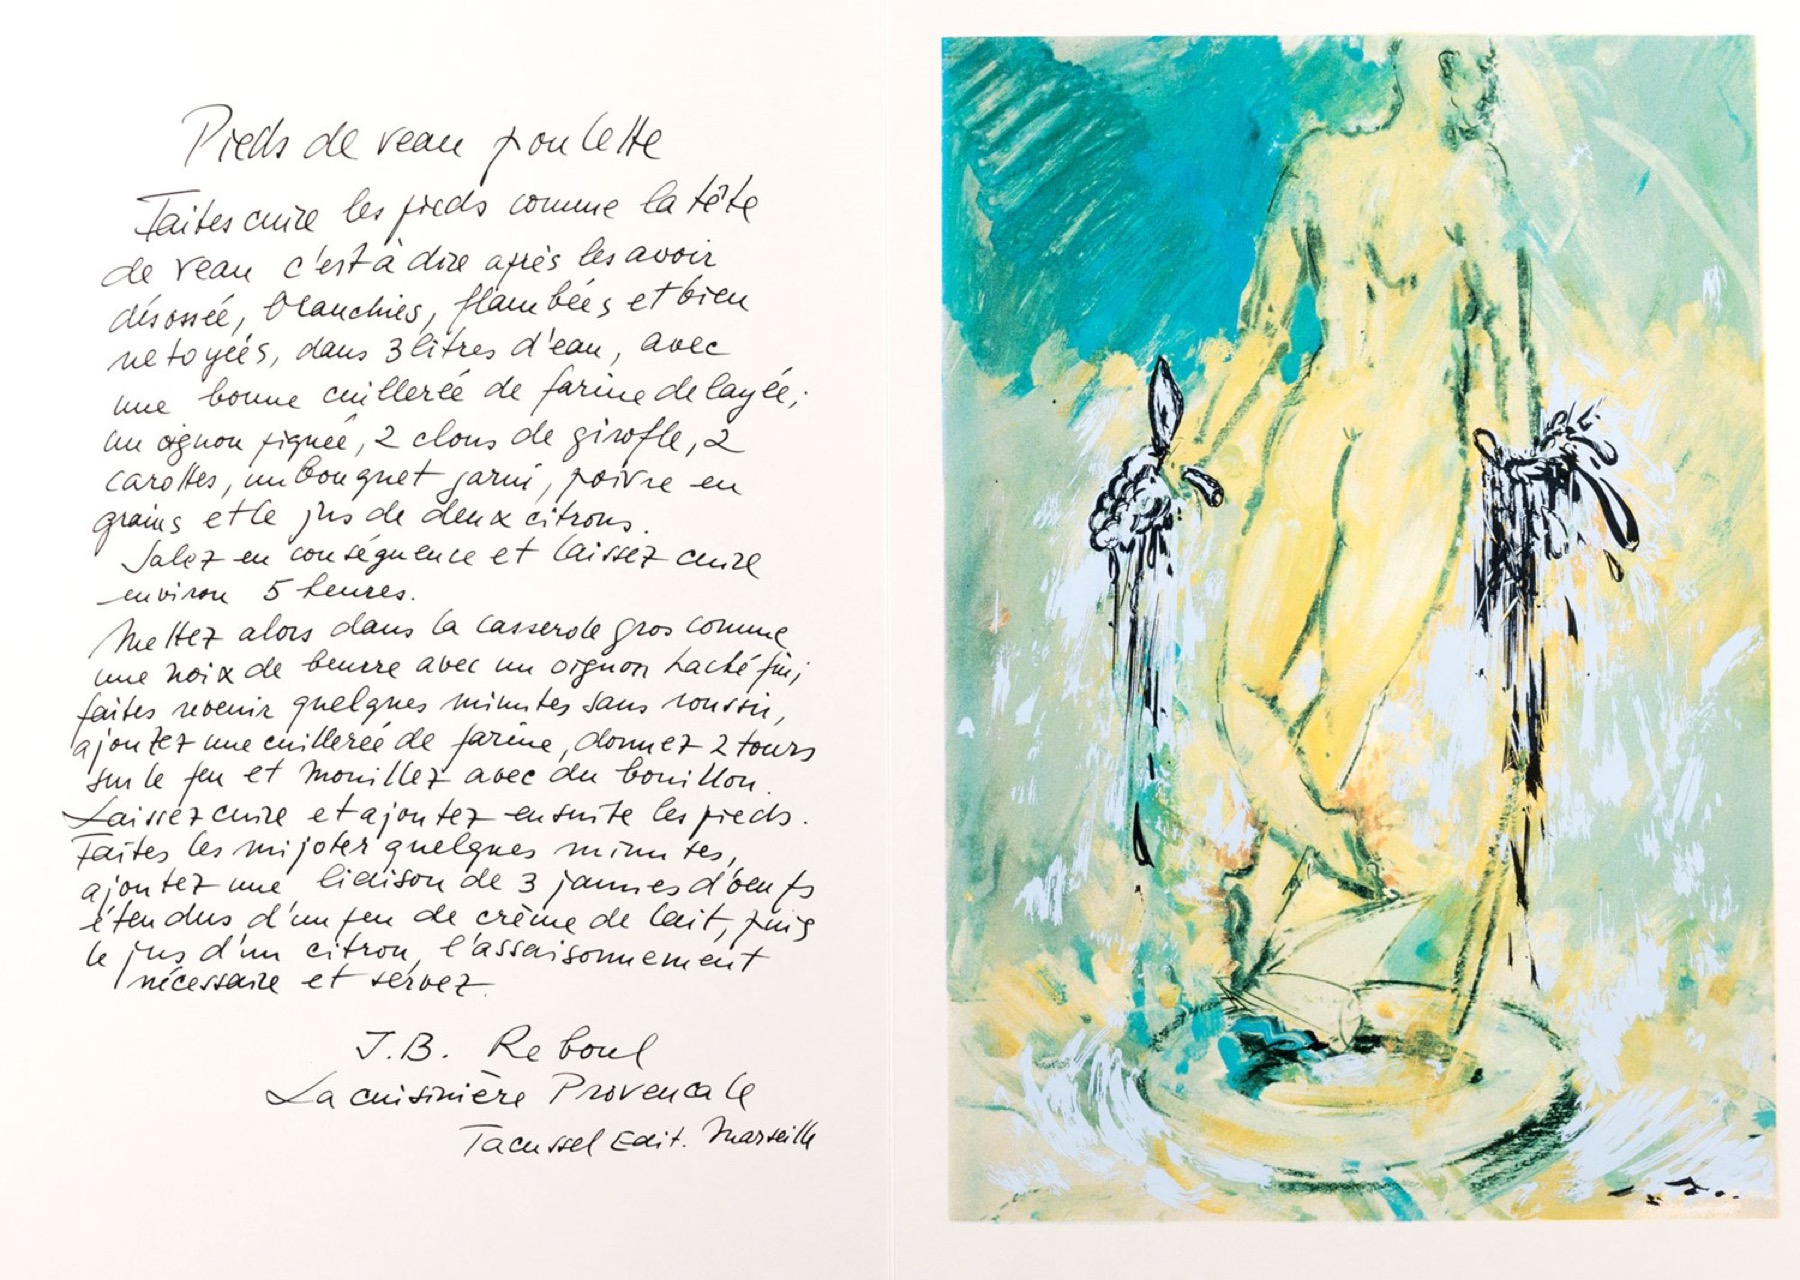 Pieds de veau poulette
Faites cuire les pieds comme la tête
de veau c'est à dire après les avoir
désossée, blanchies, flambées et bien
netoyées, dans 3 litres d'eau, avec
une bonne cuillereé de farine delayée;
un oignon piquée, 2 clous de girofle, 2
carottes, un bouquet garni, poivre en
grains et le jus de deux citrons.
Salez en conséquence et laissez cuire
environ 5 heures.
Mettez alors dans la casserole gros comme
une noix de beurre avec un oignon haché fin;
faites revenir quelques minutes sans roussir,
ajoutez une cuillereé de farine, donnez 2 tours
sur le feu et mouillez avec du bouillon.
Laissez cuire et ajoutez ensuite les pieds.
Faites les mijoter quelques minutes,
ajoutez une liaison de 3 jaunes d'oeufs
étendus d'un peu de crème de lait, puis
le jus d'un citron, l'assaisonnement
nécessaire et servez.
J.B. Reboul
La cuisinière Provencale
Tacussel Edit. Marseille